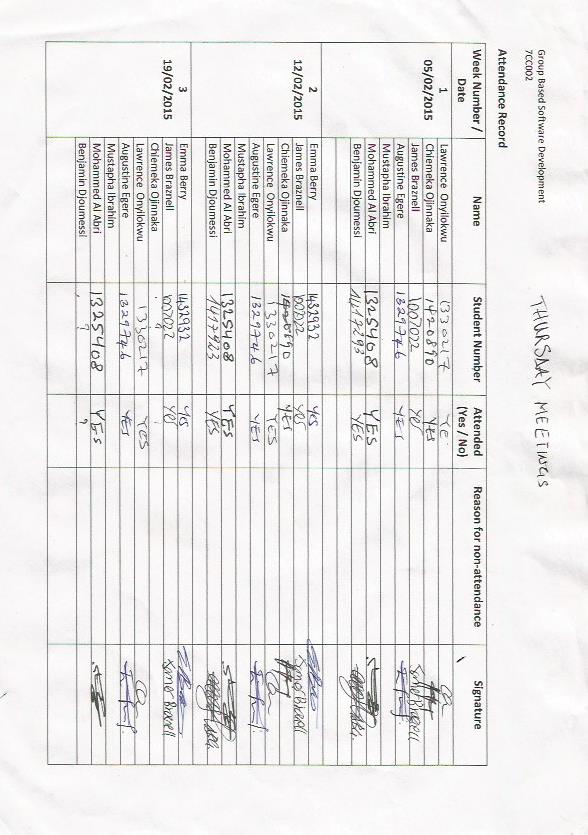 Group Based Software Development
7CC002
THURSDAY MEETINGS
Attendance Record
Week Number / Date Name Student Number Attended (Yes / No) Reason for non-attendance Signature
1
05/02/2015
Lawrence Onyilokwu 1330217 Ye
Chiemeka Ojinnaka 1420890 YES
James Braznell 1007022 yes
Augustine Egere 1329746 YES
Mustapha Ibrahim
Mohammed Al Abri 1325408 YES
Benjamin Djoumessi YES
2
12/02/2015
Emma Berry 1432932 Yes
James Braznell 1007022 yes
Chiemeka Ojinnaka 1420890 YES
Lawrence Onyilokwu 1330217 YES
Augustine Egere 1329746 YES
Mustapha Ibrahim
Mohammed Al Abri 1325408 YES
Benjamin Djoumessi 1417923 YES
3
19/02/2015
Emma Berry 1432932 Yes
James Braznell 1007022 yes
Chiemeka Ojinnaka ?
Lawrence Onyilokwu 1330217 YES
Augustine Egere 1329746 YES
Mustapha Ibrahim
Mohammed Al Abri 1325408 YES
Benjamin Djoumessi ? ?